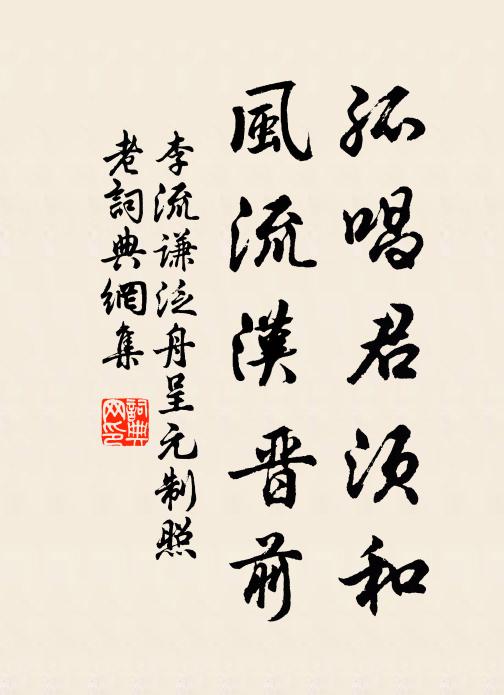 孤唱君須和
風流漢晉前
李流謙泛舟呈元制照
老詞典網集
詞典網印